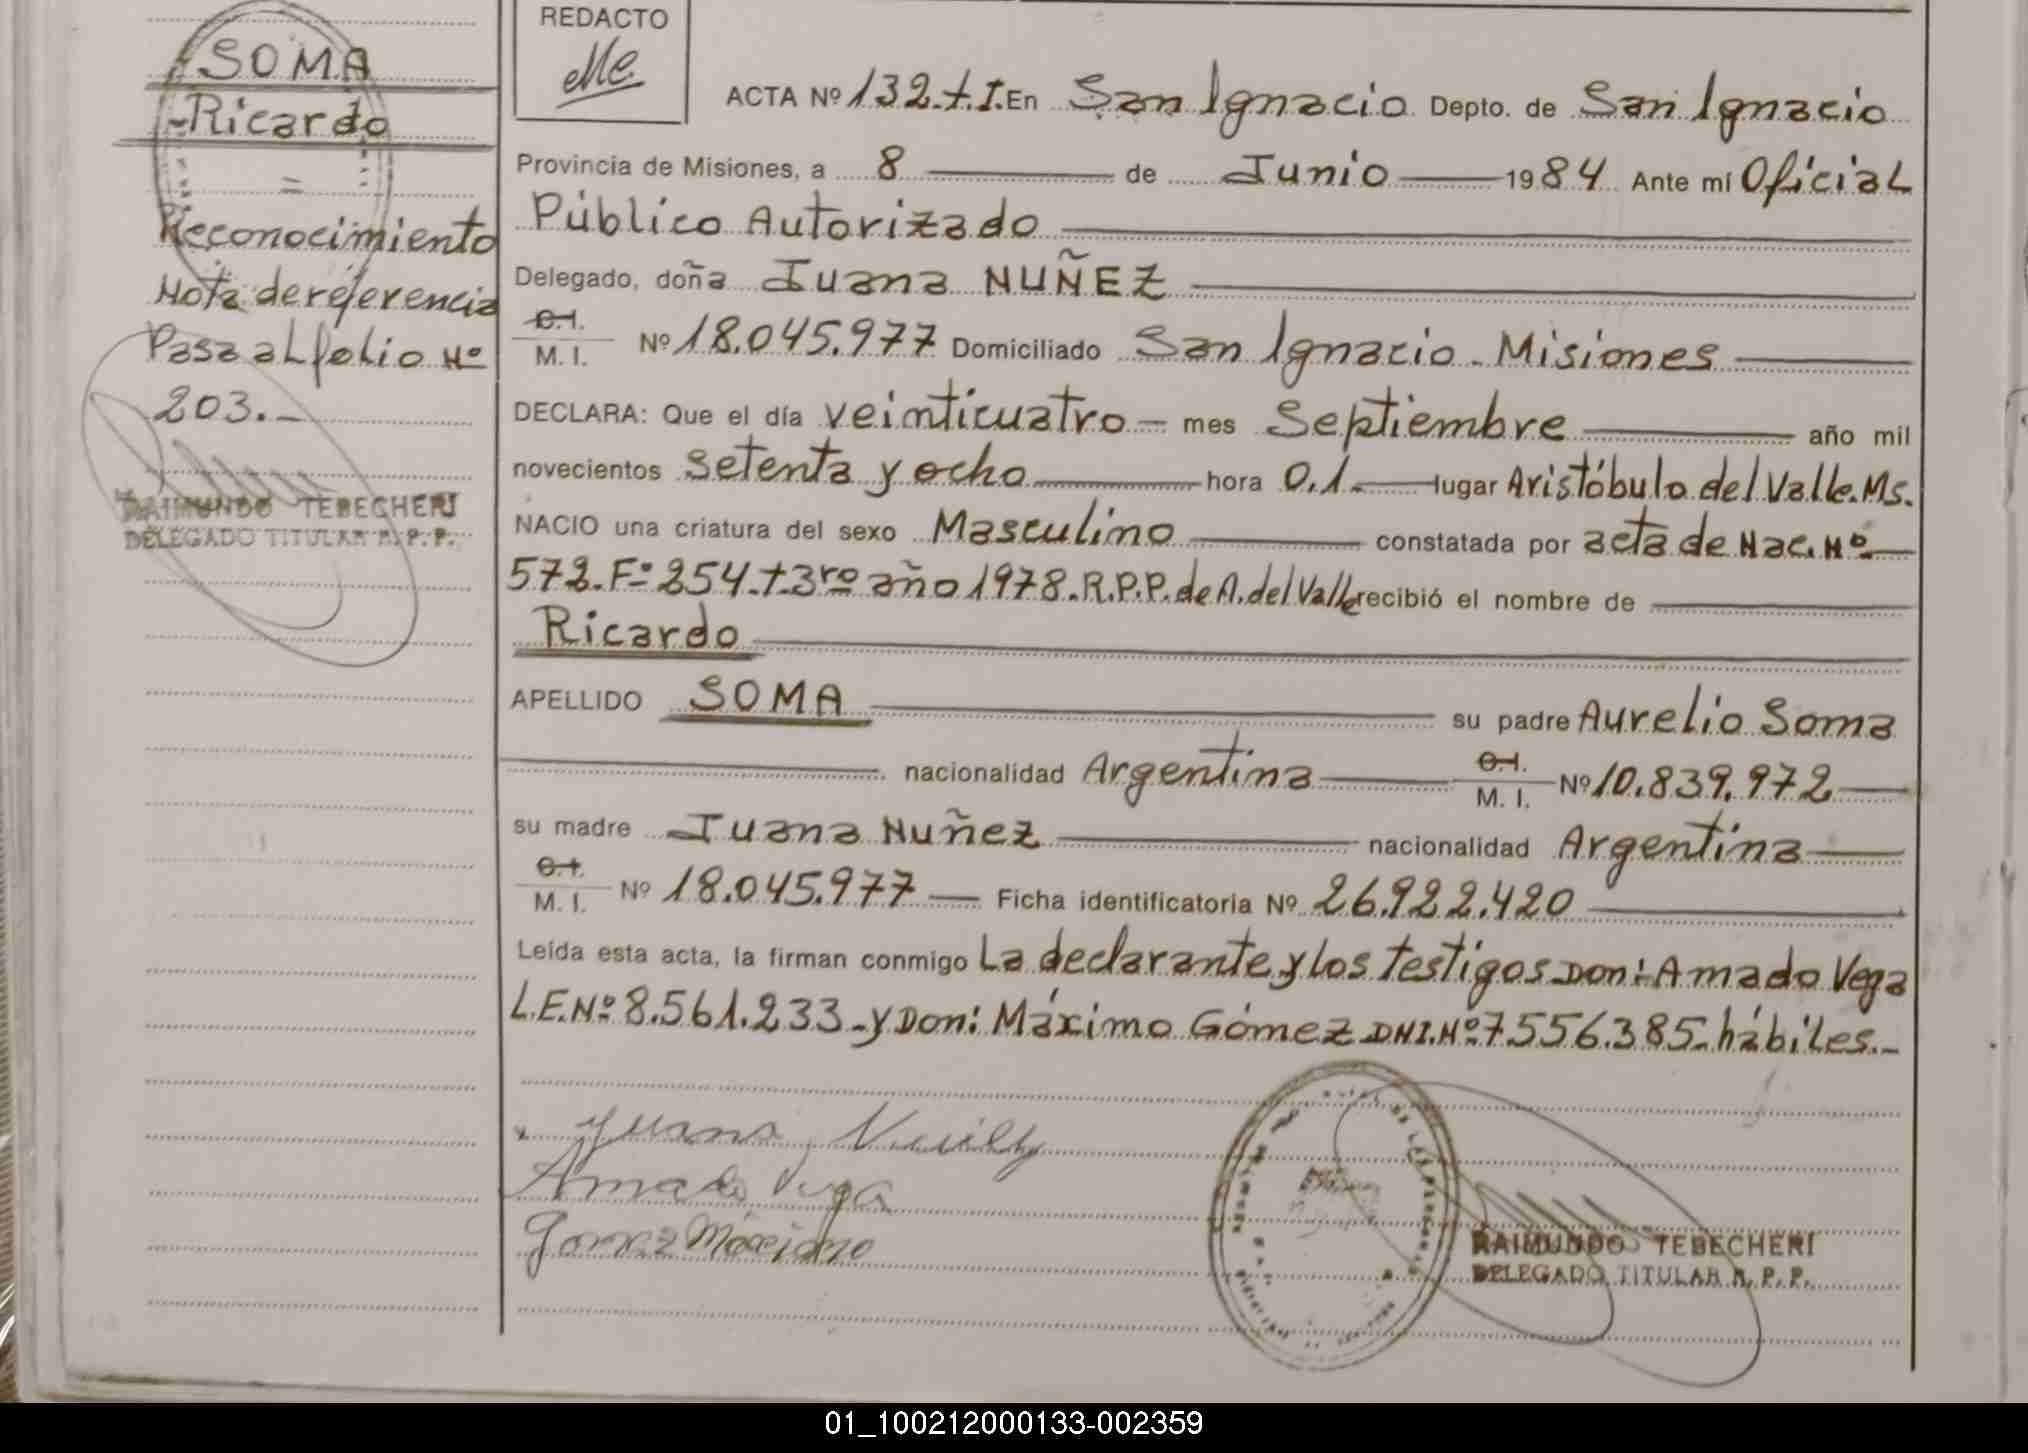 SOMA
Ricardo
=
Reconocimiento
Nota de referencia
Pasa al folio Nº
203.-
RAIMUNDO TEBECHERI
DELEGADO TITULAR R. P. P.
REDACTO
ACTA Nº 132.t.I. En San Ignacio Depto. de San Ignacio
Provincia de Misiones, a 8 de Junio 1984 Ante mí Oficial
Público Autorizado
Delegado, doña Juana NUÑEZ
C.I.
M. I. Nº 18.045.977 Domiciliado San Ignacio - Misiones
DECLARA: Que el día veinticuatro - mes Septiembre año mil
novecientos setenta y ocho hora 0.1. lugar Aristóbulo del Valle. Ms.
NACIO una criatura del sexo Masculino constatada por acta de Nac. Nº
572. Fº 254. t. 3ro año 1978. R.P.P. de A. del Valle recibió el nombre de
Ricardo
APELLIDO SOMA su padre Aurelio Soma
nacionalidad Argentina C.I.
M. I. Nº 10.839.972
su madre Juana Nuñez nacionalidad Argentina
C.I.
M. I. Nº 18.045.977 Ficha identificatoria Nº 26.922.420
Leída esta acta, la firman conmigo La declarante y los testigos Don: Amado Vega
L.E. Nº 8.561.233 - y Don: Máximo Gómez DNI. Nº 7.556.385 - hábiles.-
Juana
Amado Vega
Gomez Máximo
RAIMUNDO TEBECHERI
DELEGADO TITULAR R. P. P.
01_100212000133-002359